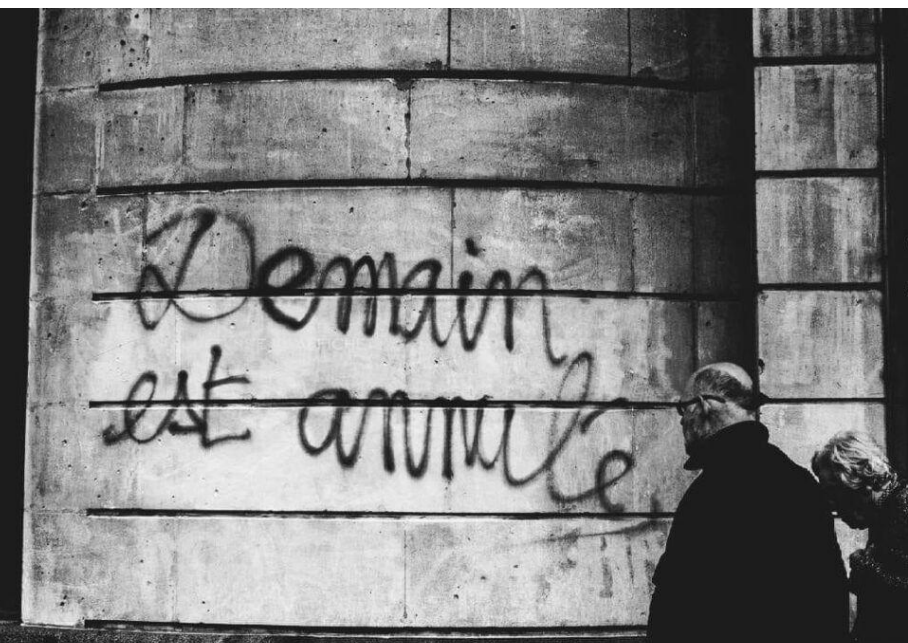 Demain
est annulé